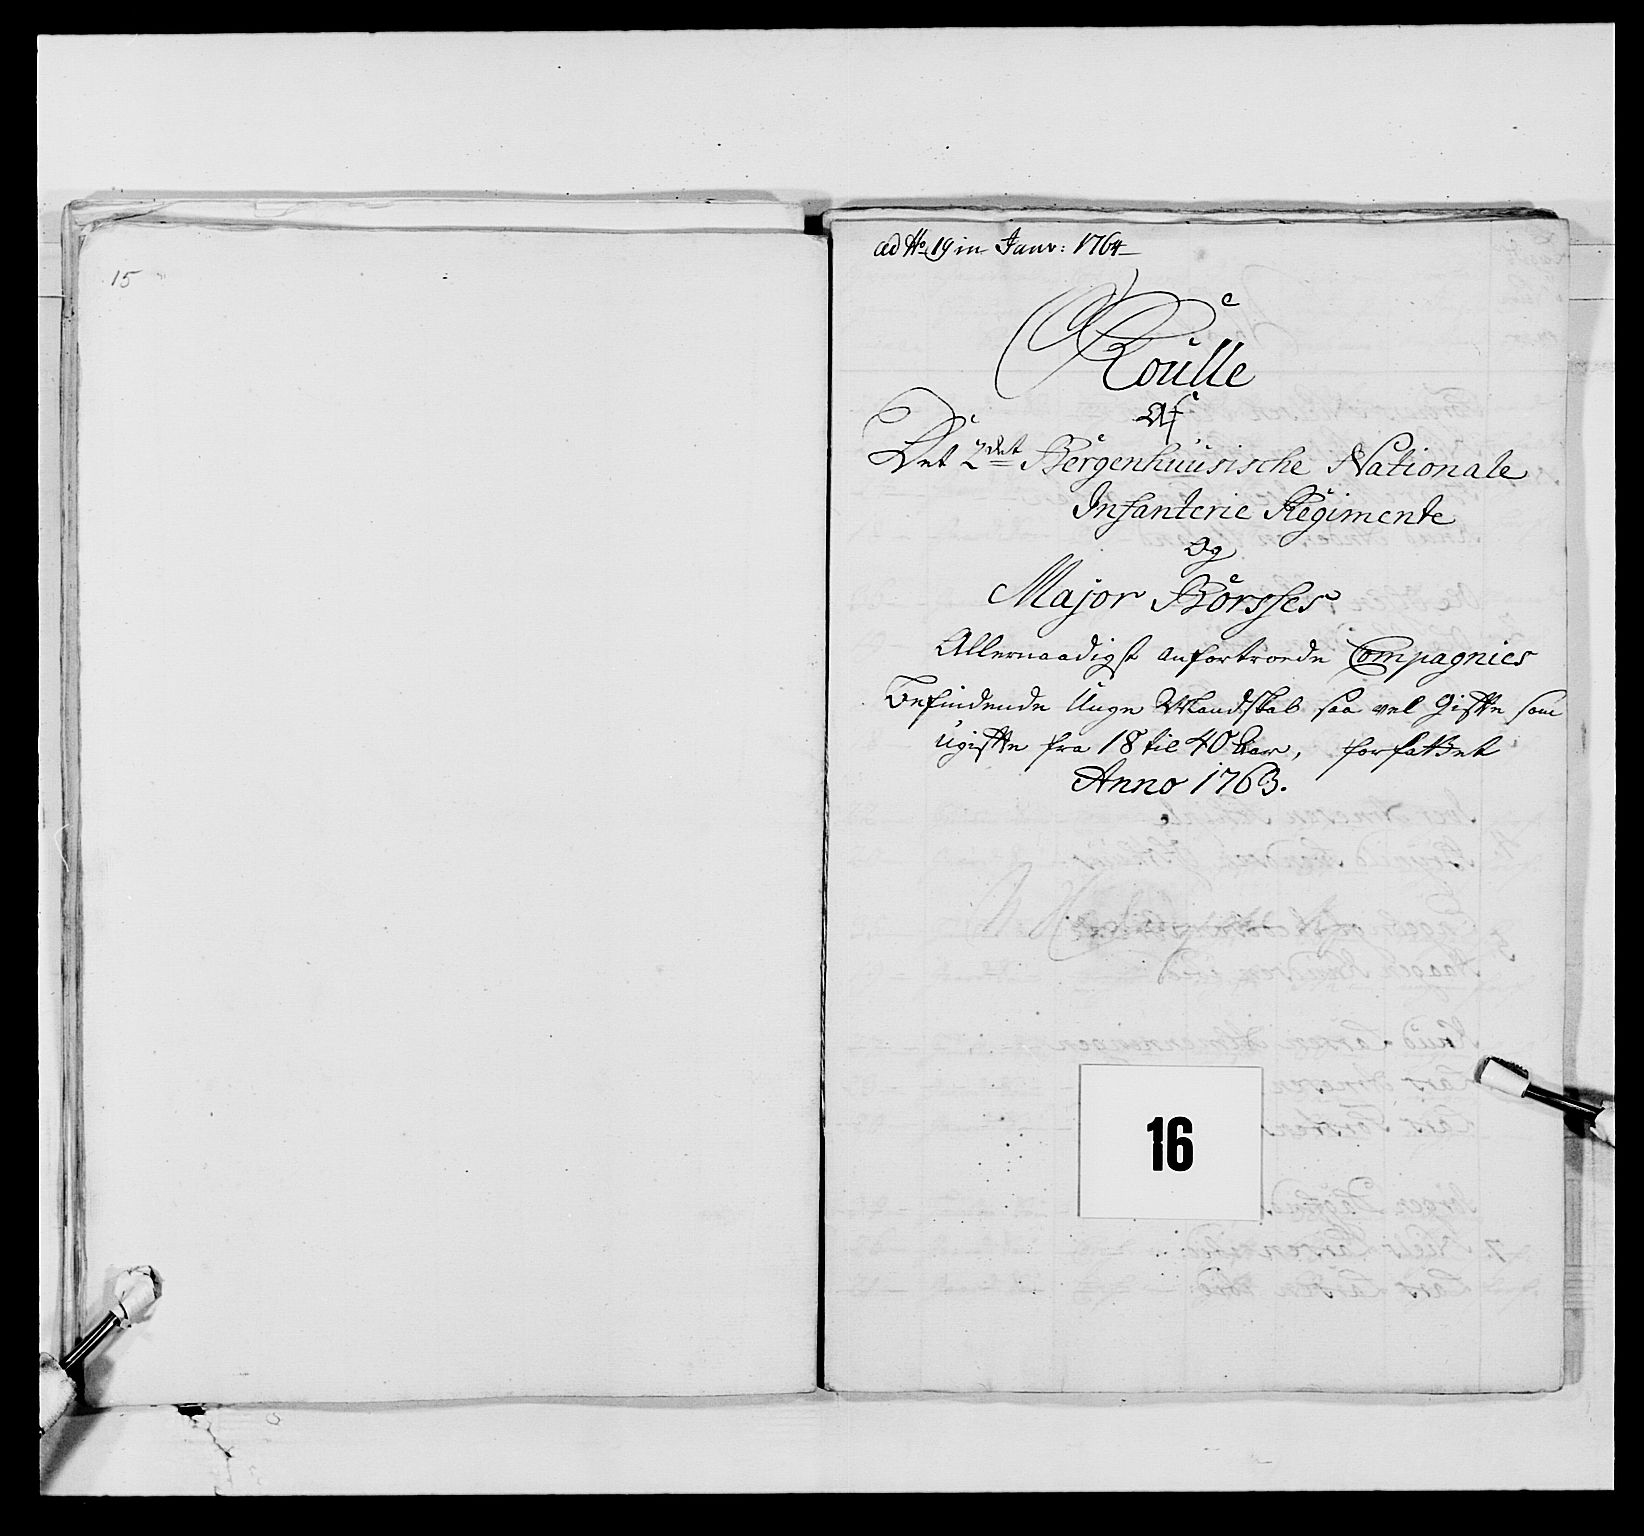 15
ad No 19 in Janv: 1764
Roulle
Af
Det 2det Bergenhuusische Nationale
Infanterie Regimente
Og
Major Börsses
Allernaadigst anfortroede Compagnies
Befindende Unge Mandskab saa vel Gifte som
ugifte fra 18 til 40 Aar, forfattet
Anno 1763.
16